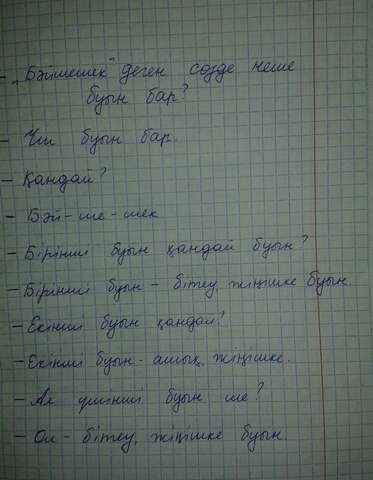 - „Бәйшешек" деген сөзде неше
буын бар?
- Үш буын бар.
- Қандай?
- Бәй-ше-шек
- Бірінші буын қандай буын?
- Бірінші буын - бітеу, жіңішке буын.
- Екінші буын қандай?
- Екінші буын - ашық, жіңішке.
- Ал үшінші буын ше?
- Ол - бітеу, жіңішке буын.